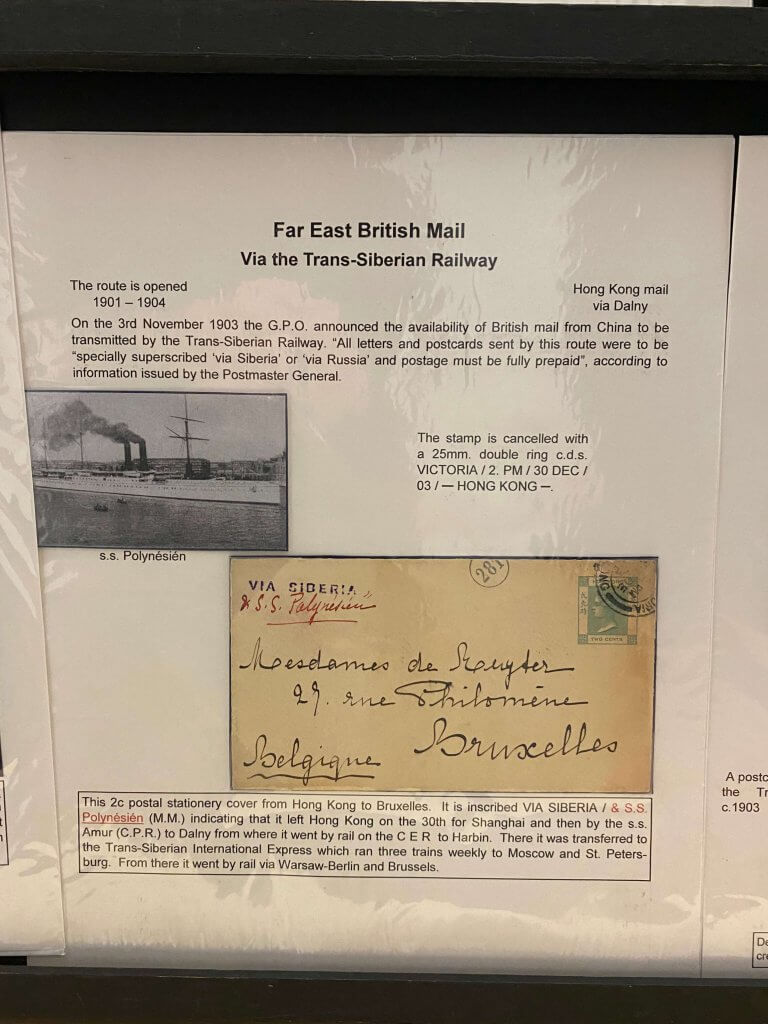 Far East British Mail
Via the Trans-Siberian Railway
The route is opened
1901 – 1904
Hong Kong mail
via Dalny
On the 3rd November 1903 the G.P.O. announced the availability of British mail from China to be
transmitted by the Trans-Siberian Railway. “All letters and postcards sent by this route were to be
“specially superscribed ‘via Siberia’ or ‘via Russia’ and postage must be fully prepaid”, according to
information issued by the Postmaster General.
The stamp is cancelled with
a 25mm. double ring c.d.s.
VICTORIA / 2. PM / 30 DEC /
03 / — HONG KONG —.
s.s. Polynésién
281
VIA SIBERIA
& S.S. Polynésien"
TWO CENTS
Mesdames de Ruyter
27. rue Philomène
Bruxelles
Belgique
This 2c postal stationery cover from Hong Kong to Bruxelles. It is inscribed VIA SIBERIA / & S.S.
Polynésién (M.M.) indicating that it left Hong Kong on the 30th for Shanghai and then by the s.s.
Amur (C.P.R.) to Dalny from where it went by rail on the C E R to Harbin. There it was transferred to
the Trans-Siberian International Express which ran three trains weekly to Moscow and St. Peters-
burg. From there it went by rail via Warsaw-Berlin and Brussels.
A postc
the Tr
c.1903
De
cre